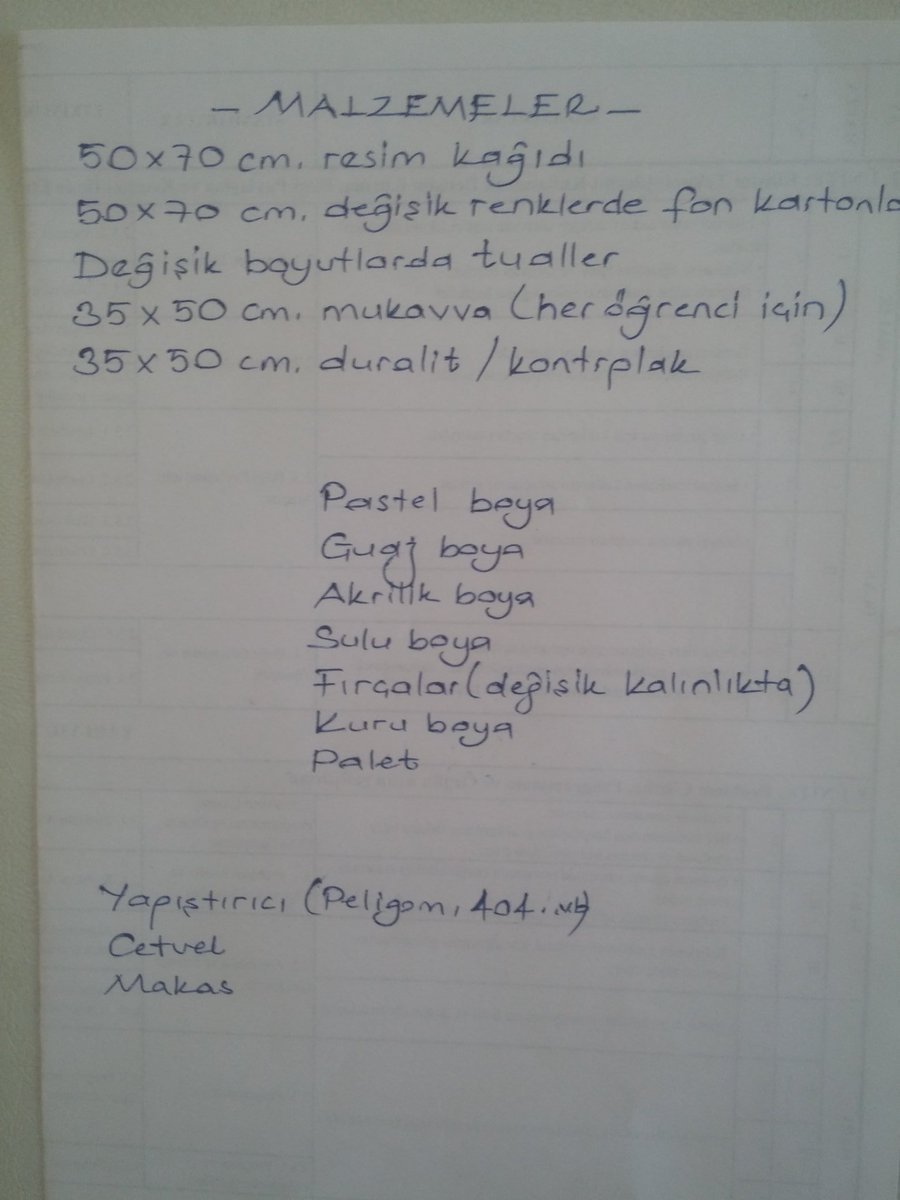 - MALZEMELER -
50x70 cm. resim kağıdı
50x70 cm. değişik renklerde fon kartonla
Değişik boyutlarda tualler
35x50 cm. mukavva (her öğrenci için)
35x50 cm. duralit / kontrplak
Pastel boya
Guaj boya
Akrilik boya
Sulu boya
Fırçalar (değişik kalınlıkta)
Kuru boya
Palet
Yapıştırıcı (Peligom, 404. vb)
Cetvel
Makas